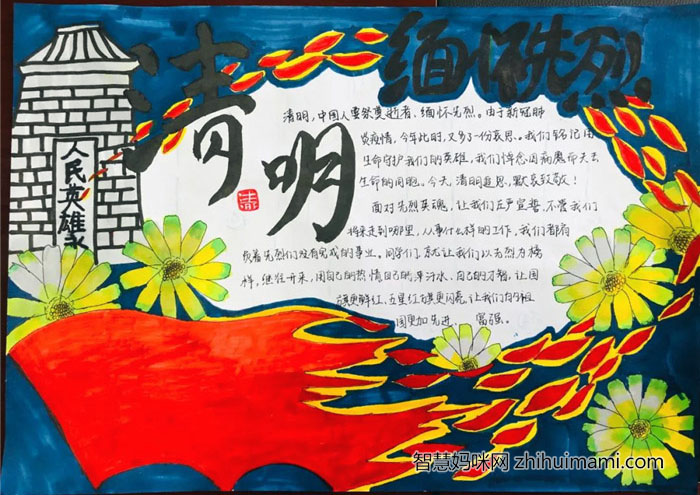 清明
缅怀先烈
人民英雄永
清
清明,中国人要祭奠逝者、缅怀先烈。由于新冠肺
炎疫情,今年此时,又多了一份哀思。我们铭记用
生命守护我们的英雄,我们悼念因病魔而失去
生命的同胞。今天,清明追思,默哀致敬!
面对先烈英魂,让我们庄严宣誓,不管我们
将来走到哪里,从事什么样的工作,我们都有
负着先烈们没有完成的事业。同学们,就让我们以先烈为榜
样,继往开来,用自己的热情自己的辛汗水、自己的才智,让国
旗更鲜红,五星红旗更闪亮,让我们的祖
国更加先进、富强。
智慧妈咪网 zhihuimami.com